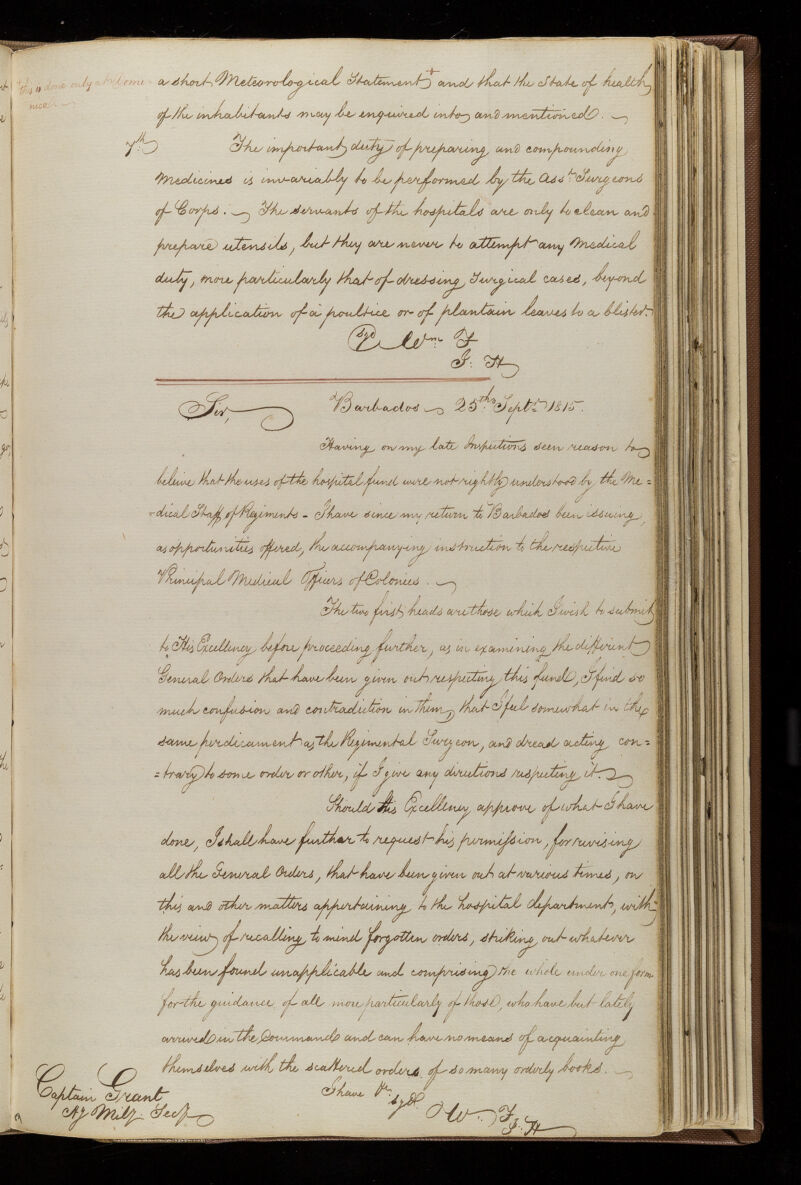 + this is done only at
a short Meteorological Statement + and that the State of health
of the inhabitants may be enquired into and mentioned.
7th The important duty of preparing and compounding
Medicines is invariably to be performed by the Asst Surgeons
of Corps. The servants of the hospitals are only to clean and
prepare utensils, but they are never to attempt any Medical
duty, more particularly that of dressing Surgical cases, beyond
the application of a poultice or of plantain leaves to a blister.
Sgd Wm F
I: H
Sir, Barbados 25th Septr 1815.
Having on my late Inspections seen reason to
beleive that the uses of the hospital fund were not rightly understood by the Me=
=dical Staff of Regiments - I have since my return to Barbados been issuing,
as opportunities offered, the accompanying instruction to the respective
Principal Medical Officers of Colonies.
The two first heads are those which I wish to submit
to His Excellency before proceeding further, as in examining the different
General Orders that have been given out respecting this fund, I find so
much confusion and contradiction in them, that I feel somewhat in the
same perdicament as the Regimental Surgeon, and dread acting con=
=trary to some order or other, if I give any directions respecting it.
Should His Excellency approve of what I have
done, I shall have further to request his permission, for revising
all the General Orders, that have been given out at various times, on
this and other matters appertaining to the hospital department, with
the view of recalling to mind forgotten orders, striking out whatever
has been found unapplicable and comprising the whole under one form
for the guidance of all more particularly of those, who have but lately
arrived in the Command and can have no means of acquainting
themselves with the scattered orders of so many orderly books.
I have &c
Sgd Wm F
I: H
Captain Grant
Ag Mily Secy